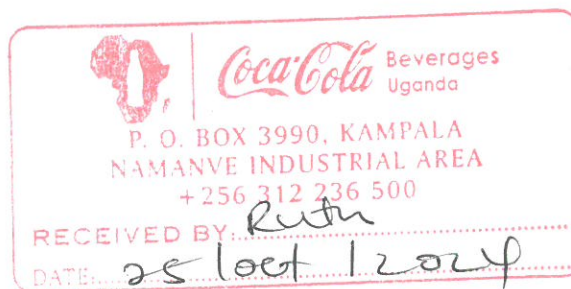 Coca-Cola Beverages
Uganda
P. O. BOX 3990, KAMPALA
NAMANVE INDUSTRIAL AREA
+256 312 236 500
RECEIVED BY: Ruth
DATE: 25 / oct / 2024